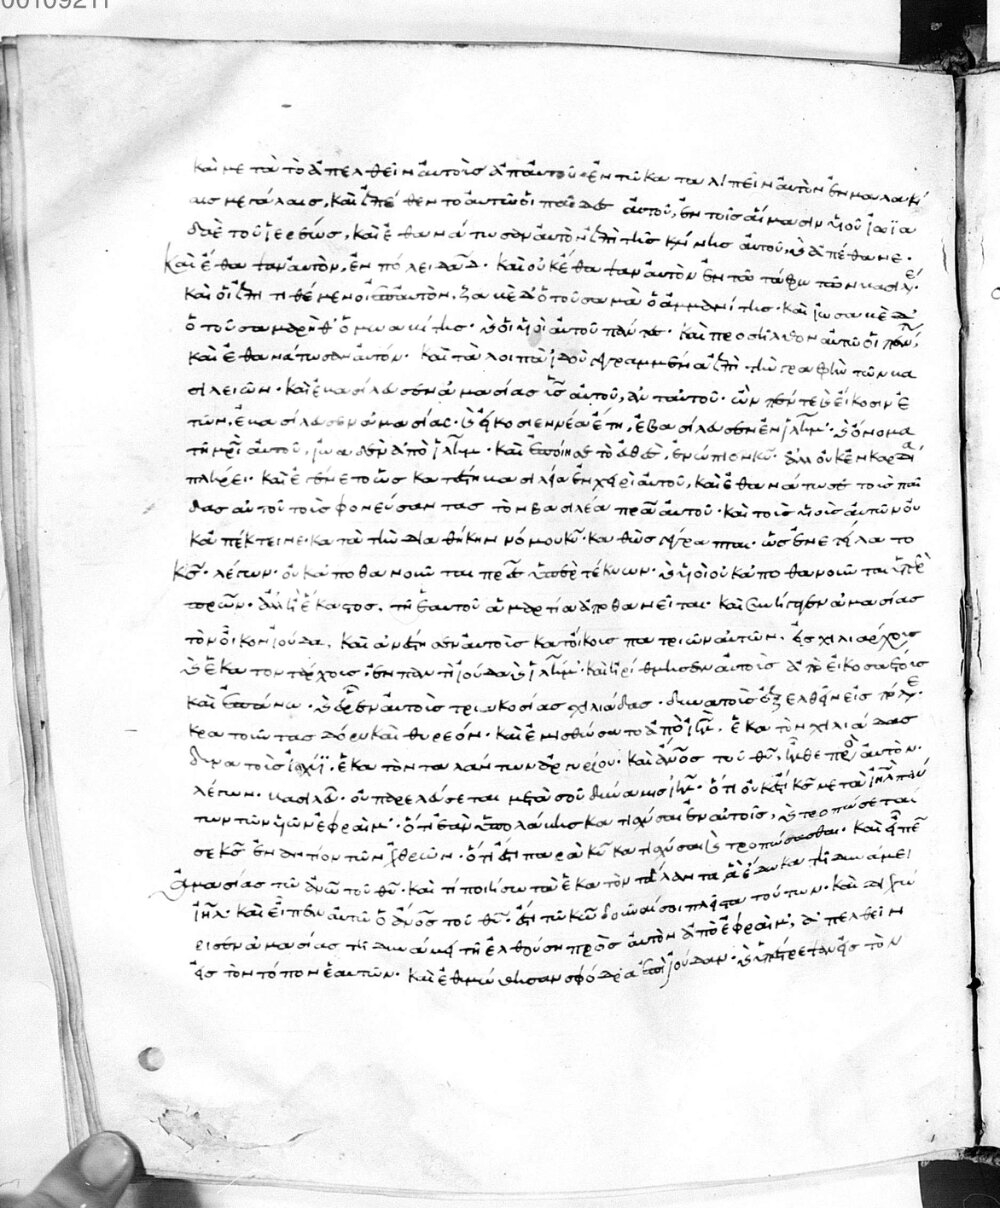 00109211
καὶ μετὰ τὸ ἀπελθεῖν αὐτοὺσ ἀπ' αὐτοῦ· ἐν τῶ καταλιπεῖν αὐτὸν ἐν μαλακί
αισ μεγάλαισ, καὶ ἐπέθεντο αὐτῶ οἱ παῖδεσ αὐτοῦ, ἐν τοῖσ αἵμασιν υἱοῦ ἰωϊα
δαὲ τοῦ ἱερέωσ, καὶ ἐθανάτωσαν αὐτὸν ἐπὶ τῆσ κλίνησ αὐτοῦ, καὶ ἀπέθανε·
Καὶ ἔθαψαν αὐτὸν, ἐν πόλει δαδ· καὶ οὐκ ἔθαψαν αὐτὸν ἐν τῶ τάφω τῶν βασιλέ·
καὶ οἱ ἐπιτιθέμενοι ἐπ' αὐτὸν, ζαβὲδ ὁ τοῦ σαμὰ ὁ ἀμμανίτησ· καὶ ἰωζαβὲδ
ὁ τοῦ σαμαρὴθ ὁ μωαβίτησ· καὶ οἱ υἱοὶ αὐτοῦ πάντεσ· καὶ προσῆλθον αὐτῶ οἱ πέντε,
καὶ ἐθανάτωσαν αὐτόν· καὶ τὰ λοιπὰ ἰδοὺ γεγραμμένα ἐπὶ τὴν γραφὴν τῶν βα
σιλειῶν· καὶ ἐβασίλευσεν ἀμασίας υἱὸσ αὐτοῦ, ἀντ' αὐτοῦ· ὢν πέντε καὶ εἴκοσιν ἐ
τῶν, ἐβασίλευσεν ἀμασίας· καὶ εἰκοσιεννέα ἔτη, ἐβασίλευσεν ἐν ἱλημ· καὶ ὄνομα
τῆ μρὶ αὐτοῦ, ἰωαδὲν ἀπὸ ἱλημ· καὶ ἐποίησε τὸ εὐθὲσ, ἐνώπιον κυ· ἀλλ' οὐκ ἐν καρδία
πλήρει· καὶ ἐγένετο ὡσ κατέστη ἡ βασιλεία ἐν χειρὶ αὐτοῦ, καὶ ἐθανάτωσε τοὺσ παῖ
δασ αὐτοῦ τοὺσ φονεύσαντασ τὸν βασιλέα πρα αὐτοῦ· καὶ τοὺσ υἱοὺσ αὐτῶν οὐ
κ ἀπέκτεινε· κατὰ τὴν διαθήκην νόμου κυ· καθὼσ γέγραπται· ὡσ ἐνετείλατο
κσ· λέγων· οὐκ ἀποθανοῦνται πρεσ ὑπὲρ τέκνων· καὶ υἱοὶ οὐκ ἀποθανοῦνται ὑπὲρ
πρων· ἀλλ' ἢ ἕκαστοσ, τῆ ἑαυτοῦ ἁμαρτία ἀποθανεῖται· καὶ συνήγαγεν ἀμασίας
τὸν οἶκον ἰούδα, καὶ ἀνέστησεν αὐτοὺσ κατ' οἴκουσ πατριῶν αὐτῶν· εἰσ χιλιάρχουσ
καὶ ἑκατοντάρχουσ· ἐν παντὶ ἰούδα καὶ ἱλημ· καὶ ἠρίθμησεν αὐτοὺσ ἀπὸ εἰκοσαετοῦσ
καὶ ἐπάνω· καὶ εὗρεν αὐτοὺσ τριακοσίασ χιλιάδασ· δυνατοὺσ ἐξελθεῖν εἰσ πόλεμον·
κρατοῦντασ δόρυ καὶ θυρεόν· καὶ ἐμισθώσατο ἀπὸ ιηλ· ἑκατὸν χιλιάδασ
δυνατοὺσ ἰσχύϊ· ἑκατὸν ταλάντων ἀργυρίου· καὶ ἀνοσ τοῦ θυ, ἦλθε πρὸσ αὐτὸν·
λέγων· βασιλεῦ· οὐ παρελεύσεται μετὰ σοῦ δύναμισ ιηλ· ὅτι οὐκ ἔστι κσ μετὰ ιηλ πάν
των τῶν υἱῶν ἐφραίμ· ὅτι ἐὰν ὑπολάβησ κατισχύσαι ἐν αὐτοῖσ, καὶ τροπώσεταί
σε κσ ἐναντίον τῶν ἐχθρῶν· ὅτι ἔστι παρὰ κυ κατισχύσαι καὶ τροπώσασθαι· καὶ εἶπεν
Ἀμασίας τῶ ἀνω τοῦ θυ· καὶ τί ποιήσω τὰ ἑκατὸν τάλαντα ἃ ἔδωκα τῆ δυνάμει
ιηλ· καὶ εἶπεν αὐτῶ ὁ ἀνοσ τοῦ θυ· ἔστι τῶ κω δοῦναί σοι πλεῖστα τούτων· καὶ διεχώ
ρισεν ἀμασίας τῆ δυνάμει τῆ ἐλθούση πρὸσ αὐτὸν ἀπὸ ἐφραὶμ, ἀπελθεῖν
εἰσ τὸν τόπον ἑαυτῶν· καὶ ἐθυμώθησαν σφόδρα ἐπὶ ἰούδαν· καὶ ὑπέστρεψαν εἰσ τὸν